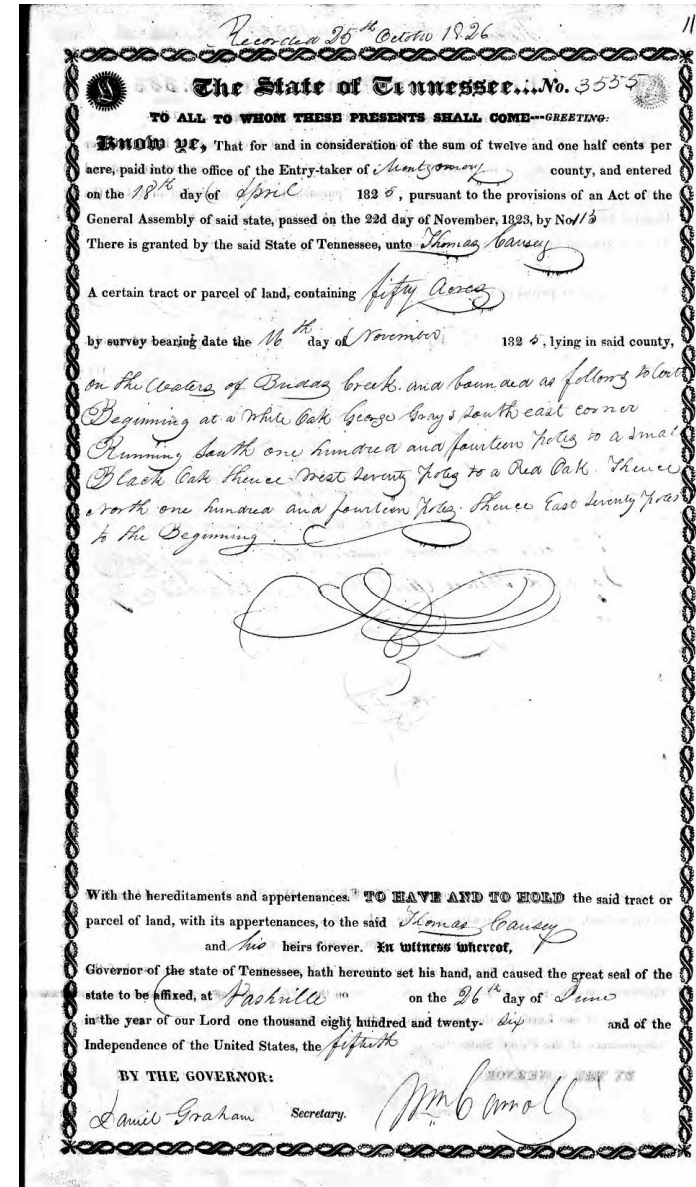 Recorded 25th October 1826
11
The State of Tennessee....No. 3555
TO ALL TO WHOM THESE PRESENTS SHALL COME---GREETING:
Know ye, That for and in consideration of the sum of twelve and one half cents per
acre, paid into the office of the Entry-taker of Montgomery county, and entered
on the 18th day of April 1825, pursuant to the provisions of an Act of the
General Assembly of said state, passed on the 22d day of November, 1823, by No 113
There is granted by the said State of Tennessee, unto Thomas Causey
A certain tract or parcel of land, containing fifty Acres
by survey bearing date the 16th day of November 1825, lying in said county,
on the Waters of Creek and bounded as follows to Wit
Beginning at a White Oak George Grays South east corner
Running South one hundred and fourteen poles to a small
Black Oak thence West seventy poles to a Red Oak. Thence
North one hundred and fourteen poles. thence East seventy poles
to the Beginning.
With the hereditaments and appertenances. TO HAVE AND TO HOLD the said tract or
parcel of land, with its appertenances, to the said Thomas Causey
and his heirs forever. In witness whereof,
Governor of the state of Tennessee, hath hereunto set his hand, and caused the great seal of the
state to be affixed, at Nashville on the 26th day of June
in the year of our Lord one thousand eight hundred and twenty- six and of the
Independence of the United States, the fiftieth
BY THE GOVERNOR:
Daniel Graham Secretary. Wm Carroll